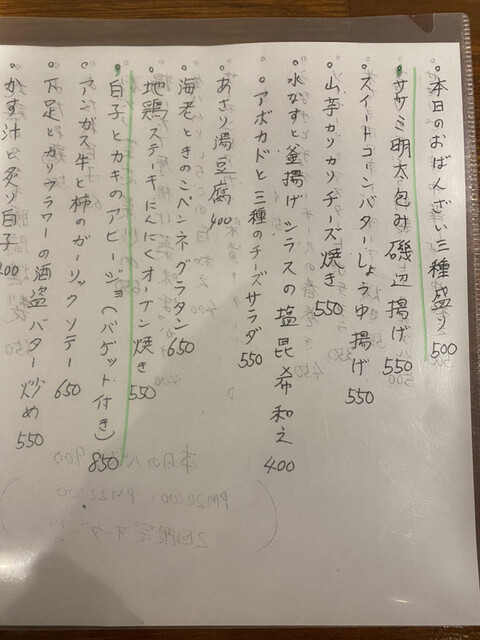 本日のおばんざい三種盛り 500
ササミ明太包み磯辺揚げ 550
スイートコーンバターしょうゆ揚げ 550
山芋カリカリチーズ焼き 550
水なすと釜揚げシラスの塩昆布和え 400
アボカドと三種のチーズサラダ 550
あさり湯豆腐 400
海老ときのこペンネグラタン 650
地鶏ステーキにんにくオーブン焼き 550
白子とカキのアヒージョ(バゲット付き) 850
アンガス牛と柿のガーリックソテー 650
下足とカリフラワーの酒盗バター炒め 550
かす汁と炙り白子
本日の
PM20:00 PM22:00
2回限定